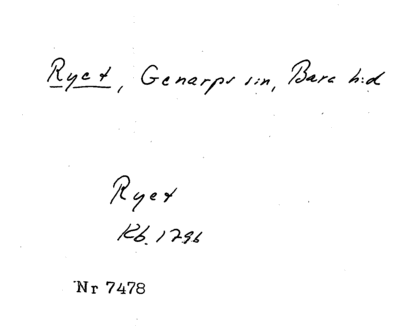 Ryet, Genarps sn, Bara hd
Ryet
Kb. 1796
Nr 7478